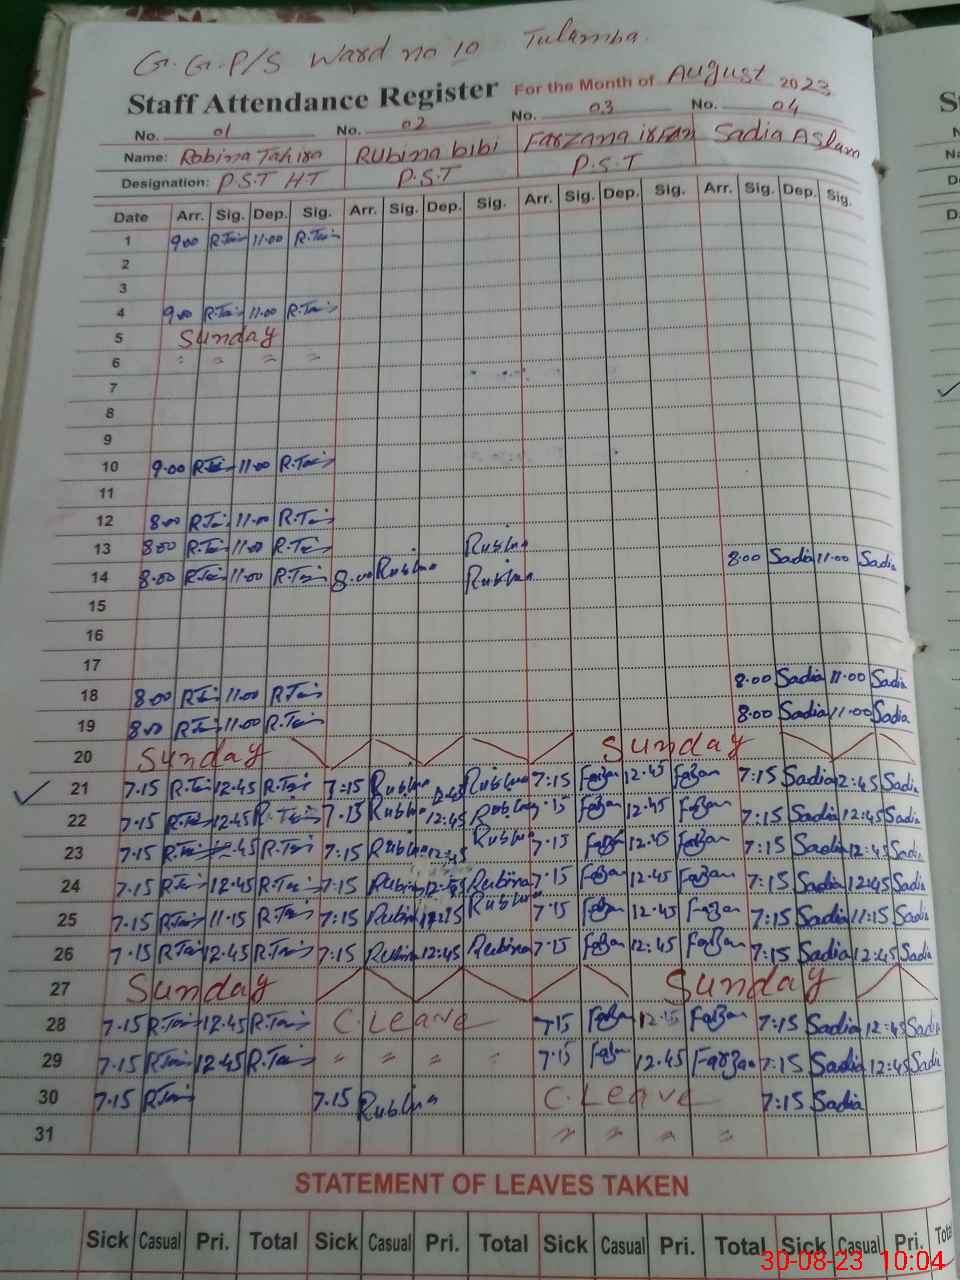 G.G.P/S Ward no 10 Tulamba.
Staff Attendance Register For the Month of August 2023
No. 01 No. 02 No. 03 No. 04
Name: Robina Tahira Rubina bibi Farzana irfan Sadia Aslam
Designation: P.S.T HT P.S.T P.S.T
Date Arr. Sig. Dep. Sig. Arr. Sig. Dep. Sig. Arr. Sig. Dep. Sig. Arr. Sig. Dep. Sig.
1 9.00 R.Tai 11.00 R.Tai
2
3
4 9.00 R.Tai 11.00 R.Tai
5 Sunday
6 " " " "
7
8
9
10 9.00 R.Tai 11.00 R.Tai
11
12 8.00 R.Tai 11.00 R.Tai
13 8.00 R.Tai 11.00 R.Tai Rubina
14 8.00 R.Tai 11.00 R.Tai 8.00 Rubina Rubina 8.00 Sadia 11.00 Sadia
15
16
17
18 8.00 R.Tai 11.00 R.Tai 8.00 Sadia 11.00 Sadia
19 8.00 R.Tai 11.00 R.Tai 8.00 Sadia 11.00 Sadia
20 Sunday Sunday
21 7.15 R.Tai 12.45 R.Tai 7:15 Rubina 12.45 Rubina 7:15 Farzan 12.45 Farzan 7:15 Sadia 12:45 Sadia
22 7.15 R.Tai 12.45 R.Tai 7.15 Rubina 12:45 Rubina 7.15 Farzan 12.45 Farzan 7:15 Sadia 12:45 Sadia
23 7.15 R.Tai 12.45 R.Tai 7:15 Rubina 12:45 Rubina 7.15 Farzan 12.45 Farzan 7:15 Sadia 12:45 Sadia
24 7.15 R.Tai 12.45 R.Tai 7:15 Rubina 12:45 Rubina 7.15 Farzan 12.45 Farzan 7:15 Sadia 12:45 Sadia
25 7.15 R.Tai 11.15 R.Tai 7:15 Rubina Rubina 7.15 Farzan 12.45 Farzan 7:15 Sadia 11:15 Sadia
26 7.15 R.Tai 12.45 R.Tai 7:15 Rubina 12:45 Rubina 7:15 Farzan 12:45 Farzan 7:15 Sadia 12:45 Sadia
27 Sunday Sunday
28 7.15 R.Tai 12.45 R.Tai C.Leave 7.15 Farzan 12.45 Farzan 7:15 Sadia 12:45 Sadia
29 7.15 R.Tai 12.45 R.Tai " " " " 7.15 Farzan 12.45 Farzan 7:15 Sadia 12:45 Sadia
30 7.15 R.Tai 7.15 Rubina C.Leave 7:15 Sadia
31 " " " "
STATEMENT OF LEAVES TAKEN
Sick Casual Pri. Total Sick Casual Pri. Total Sick Casual Pri. Total Sick Casual Pri. Total
30-08-23 10:04